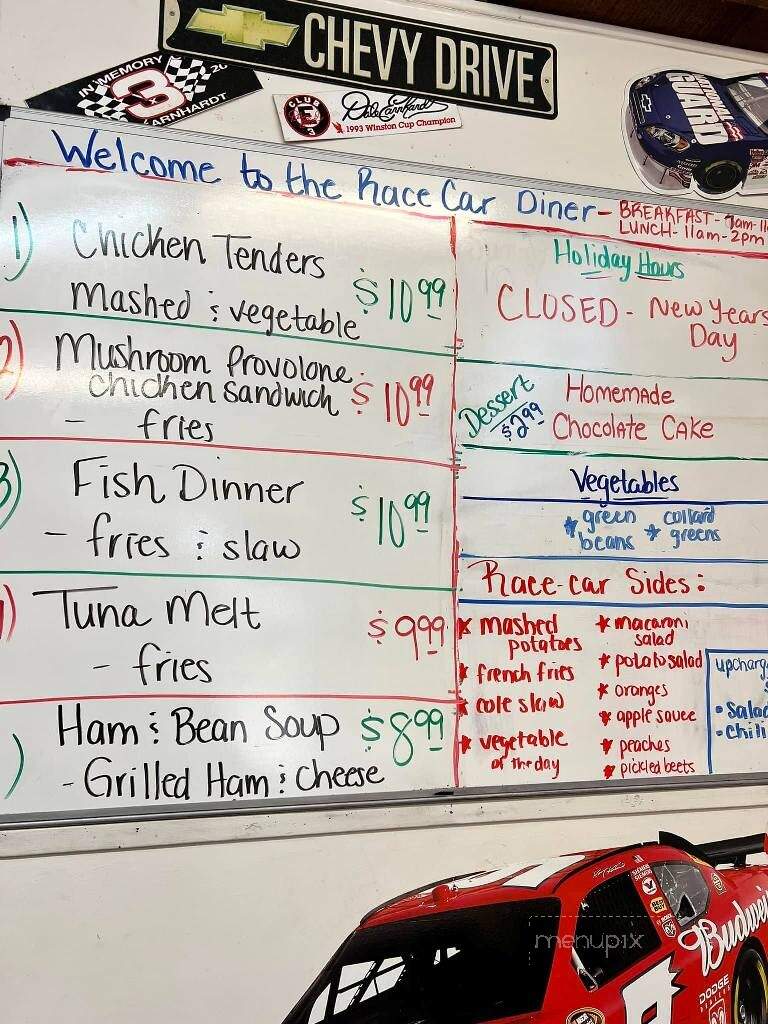 CHEVY DRIVE
IN MEMORY
3
EARNHARDT
CLUB
E3
Dale Earnhardt
1993 Winston Cup Champion
GUARD
Welcome to the Race Car Diner-
BREAKFAST - 7am-11
LUNCH - 11am - 2pm
1) Chicken Tenders
Mashed & vegetable
$10.99
2) Mushroom Provolone
chicken sandwich
- fries
$10.99
3) Fish Dinner
- fries & slaw
$10.99
) Tuna Melt
- fries
$9.99
) Ham & Bean Soup
- Grilled Ham & Cheese
$8.99
Holiday Hours
CLOSED - New Years
Day
Dessert
$2.99
Homemade
Chocolate Cake
Vegetables
* green
beans
* collard
greens
Race-car Sides:
* mashed
potatoes
* french fries
* cole slaw
* vegetable
of the day
* macaroni
salad
* potato salad
* oranges
* apple sauce
* peaches
* pickled beets
upcharg
• Salad
• Chili
menupix
Budweis
DODGE
8